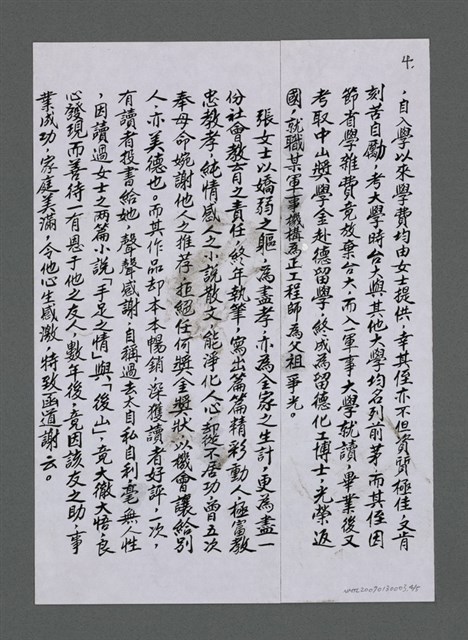 4.
，自入學以來學費均由女士提供，幸其侄亦不但資質極佳，又肯
刻苦自勵，考大學時台大與其他大學均名列前茅，而其侄因
節省學雜費竟放棄台大，而入軍事大學就讀，畢業後又
考取中山獎學金赴德留學，終成為留德化工博士，光榮返
國，就職某軍事機構為正工程師，為父祖爭光。
張女士以嬌弱之軀，為盡孝，亦為全家之生計，更為盡一
份社會教育之責任，終年執筆，寫出篇篇精彩動人極富教
忠教孝，純情感人之小說散文，能淨化人心，却從不居功，曾五次
奉母命婉謝他人之推荐，拒絕任何獎金獎狀，以機會讓給別
人，亦美德也。而其作品却本本暢銷，深獲讀者好評，一次，
有讀者投書給她，聲聲感謝，自稱過去太自私自利，毫無人性
，因讀過女士之兩篇小說「手足之情」與「後山」，竟大徹大悟，良
心發現，而善待一有恩于他之友人，數年後，竟因該友之助，事
業成功，家庭美滿，令他心生感激，特致函道謝云。